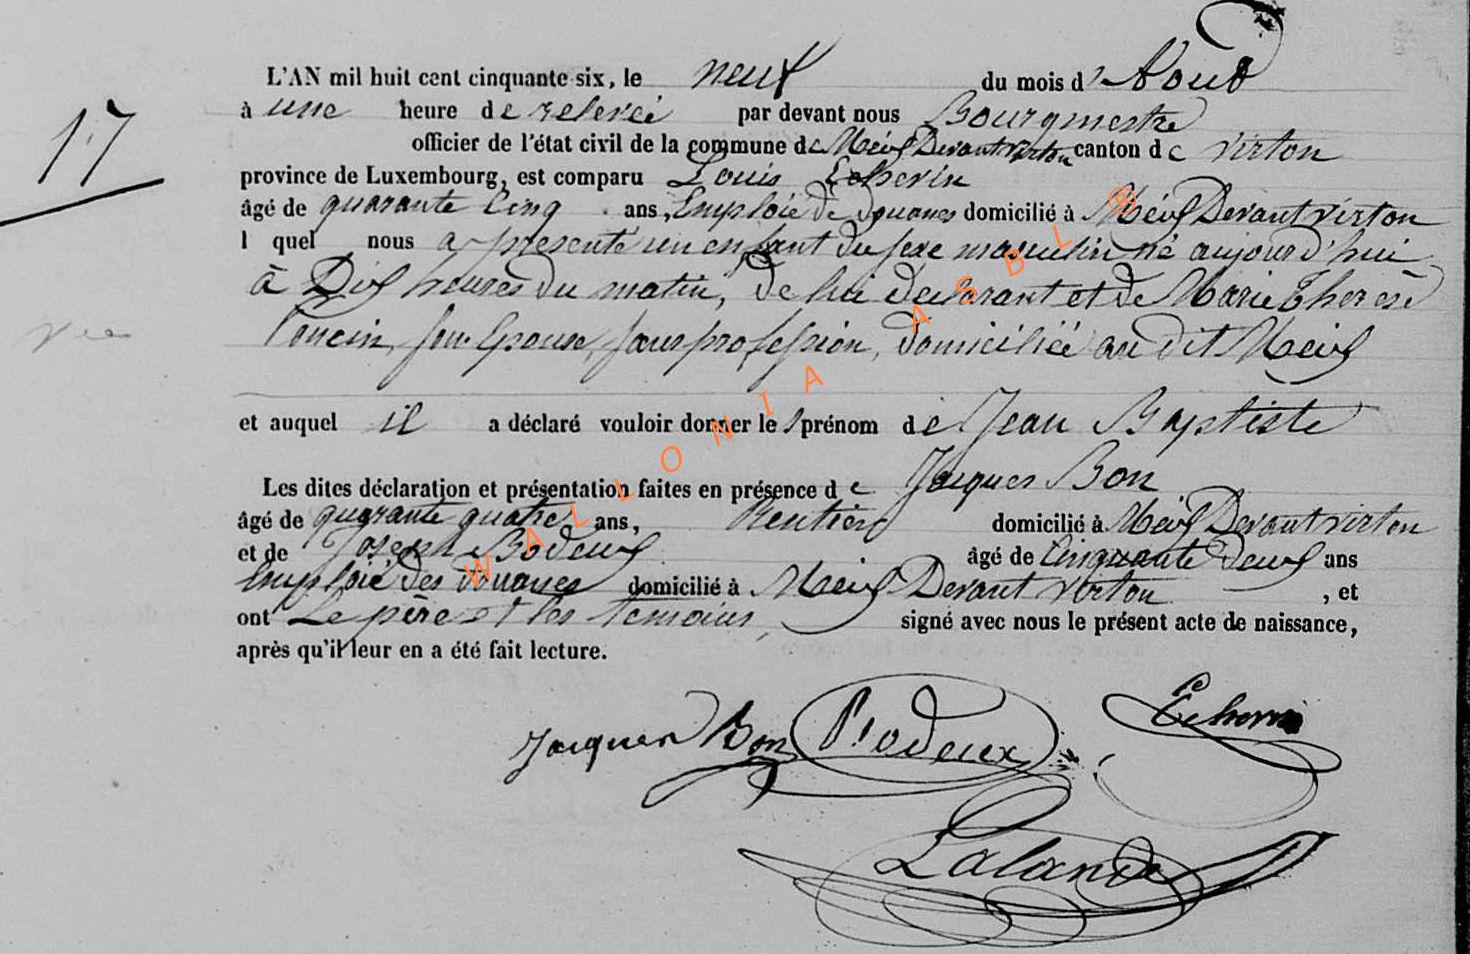 L'AN mil huit cent cinquante-six, le neuf du mois d' Aout
à une heure de relevée par devant nous Bourgmestre
officier de l'état civil de la commune de Meix Devant virton canton de virton
province de Luxembourg, est comparu Louis Echerin
âgé de quarante Cinq ans, Emploié de Douanes domicilié à Meix Devant virton
l quel nous a présenté un enfant du sexe masculin né aujourd'hui
à Dix heures du matin, de lui declarant et de Marie Therese
son Epouse, sans profession, domiciliée au dit Meix
et auquel il a déclaré vouloir donner le s prénom de Jean Baptiste
Les dites déclaration et présentation faites en présence de Jacques Bon
âgé de quarante quatre ans, Rentier domicilié à Meix Devant virton
et de Joseph Bodeux âgé de Cinquante Deux ans
Emploié des Douanes domicilié à Meix Devant virton , et
ont Le père et les temoins, signé avec nous le présent acte de naissance,
après qu'il leur en a été fait lecture.
17
Jacques Bon Bodeux Echerin
Lalande
WALLONIA ASBL ®